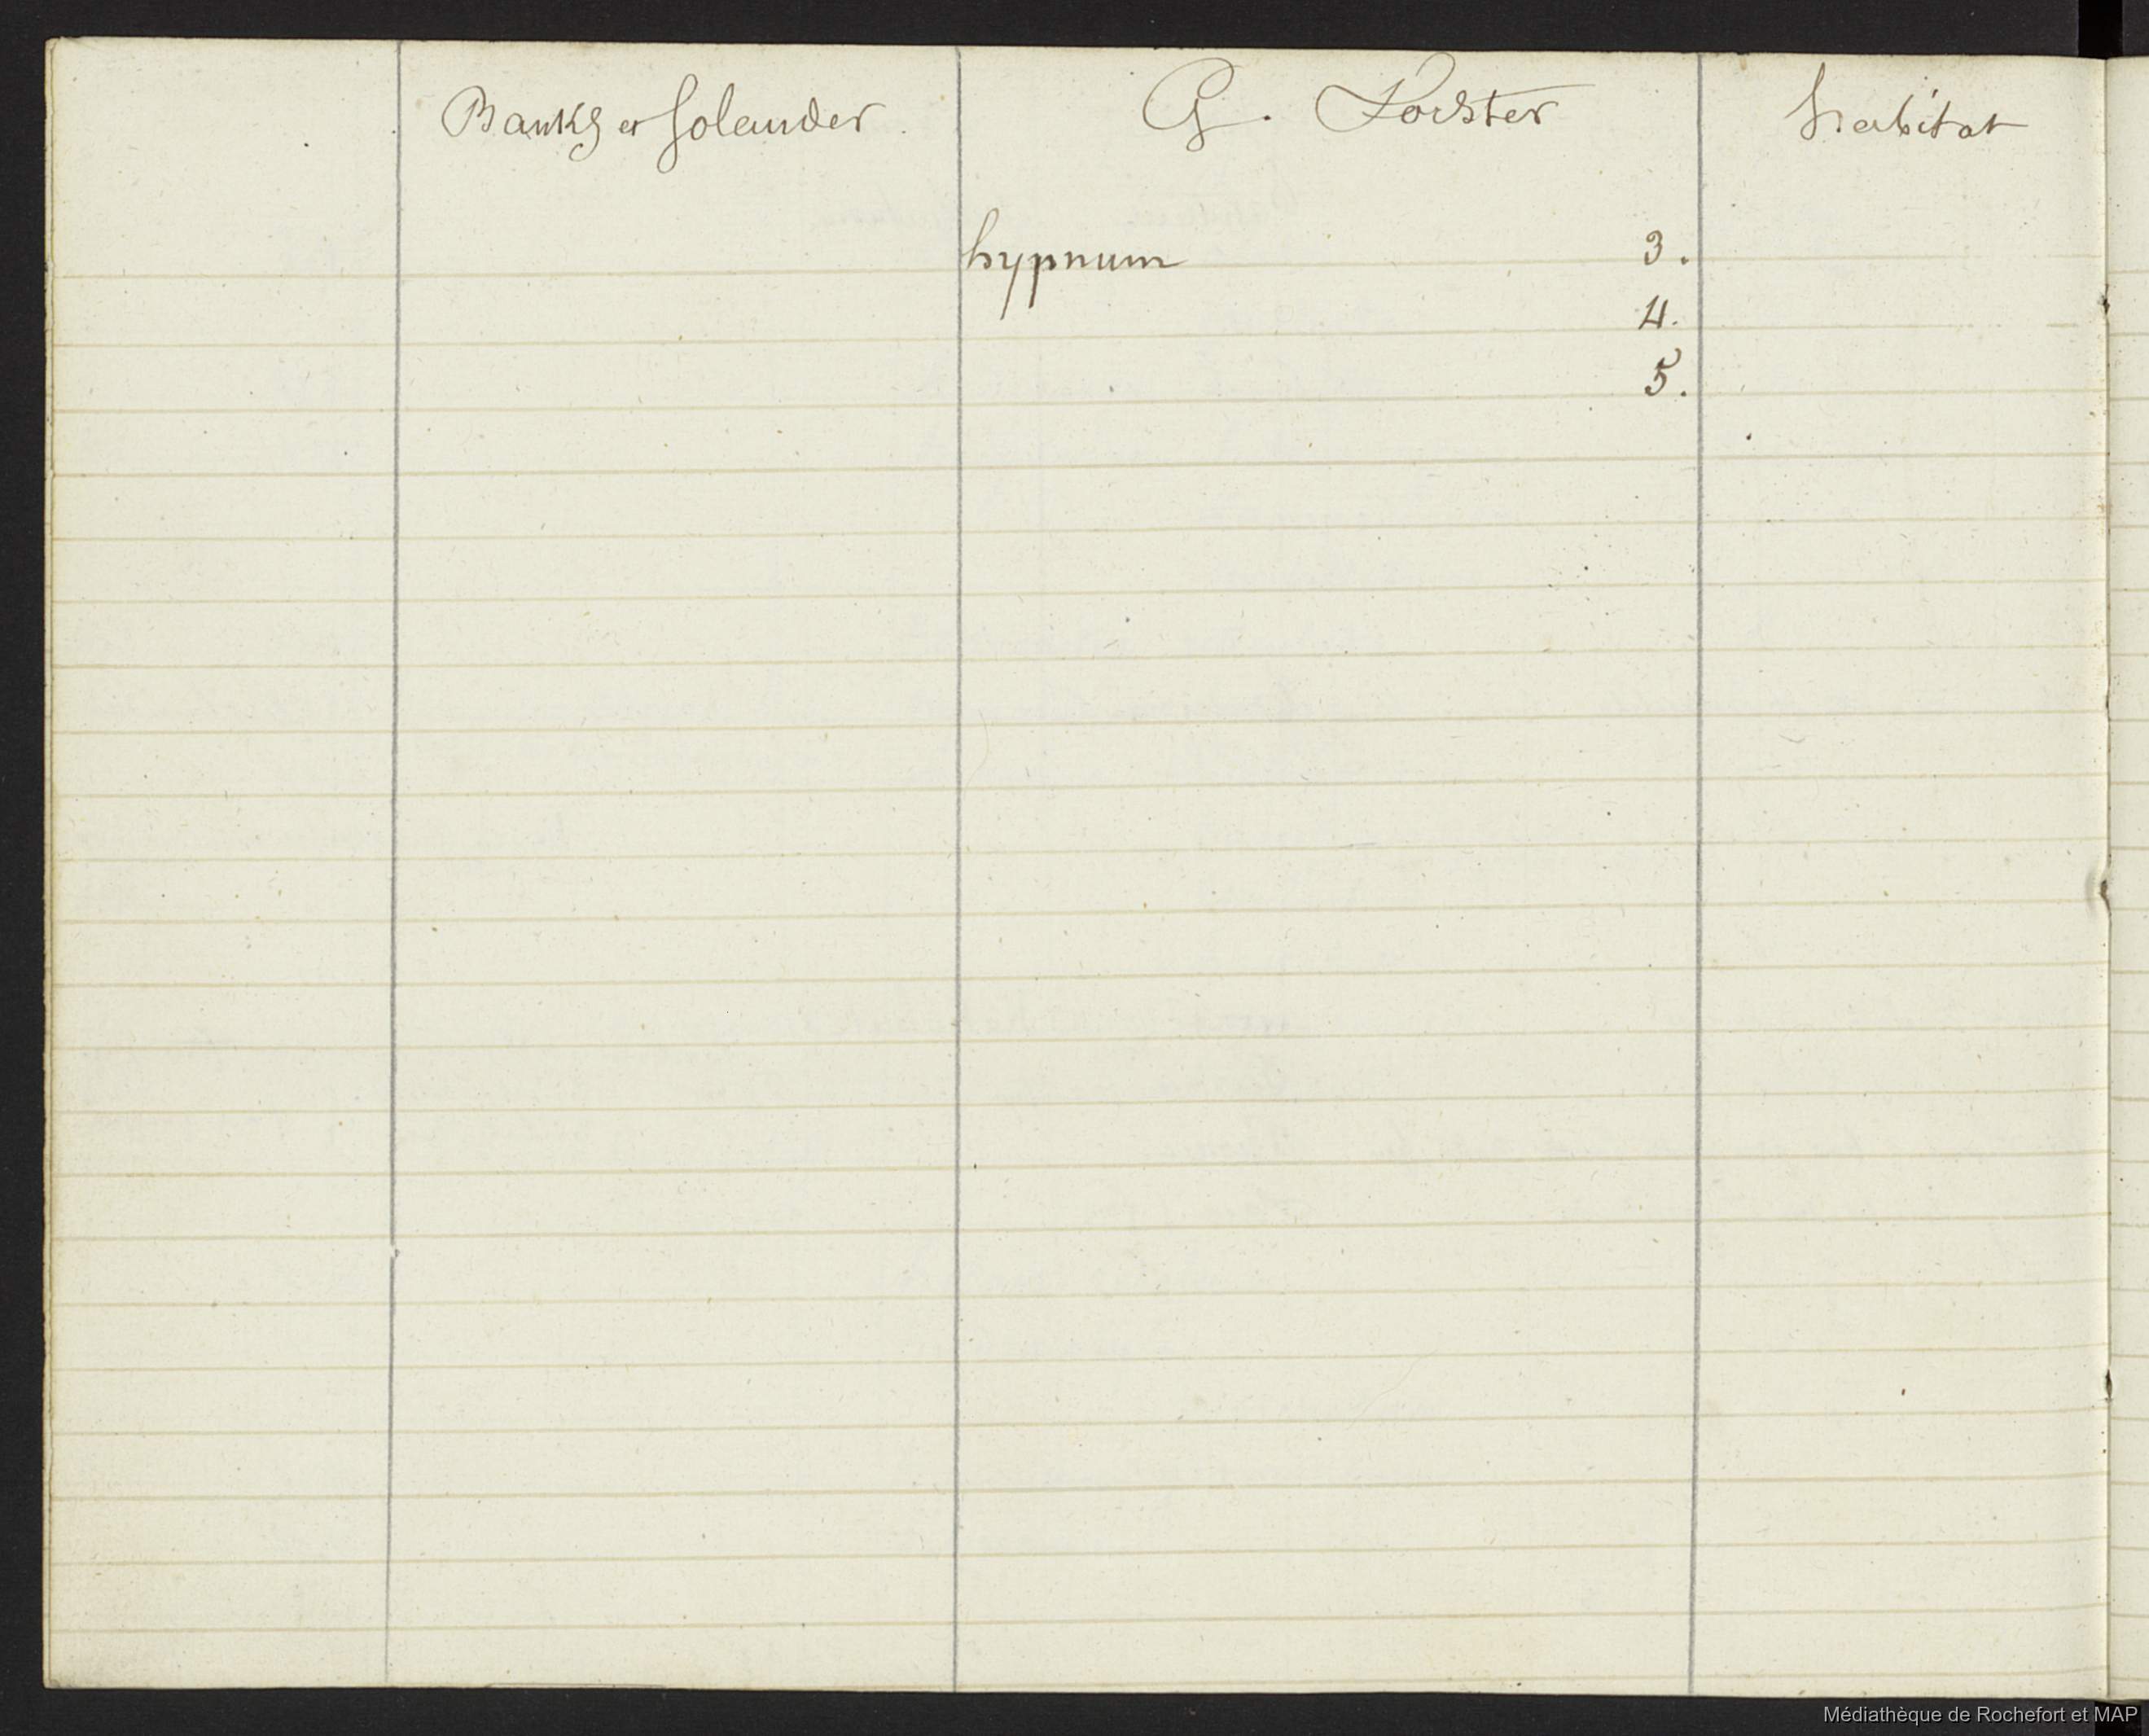 Banks et Solander. G. Forster habitat
hypnum 3.
4.
5.
Médiathèque de Rochefort et MAP